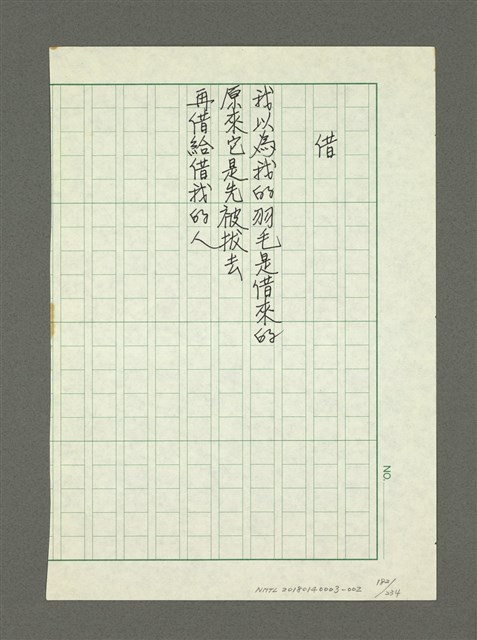 借
我以為我的羽毛是借來的
原來它是先被拔去
再借給借我的人
NO.
NMTL 20180140003-002
182/234